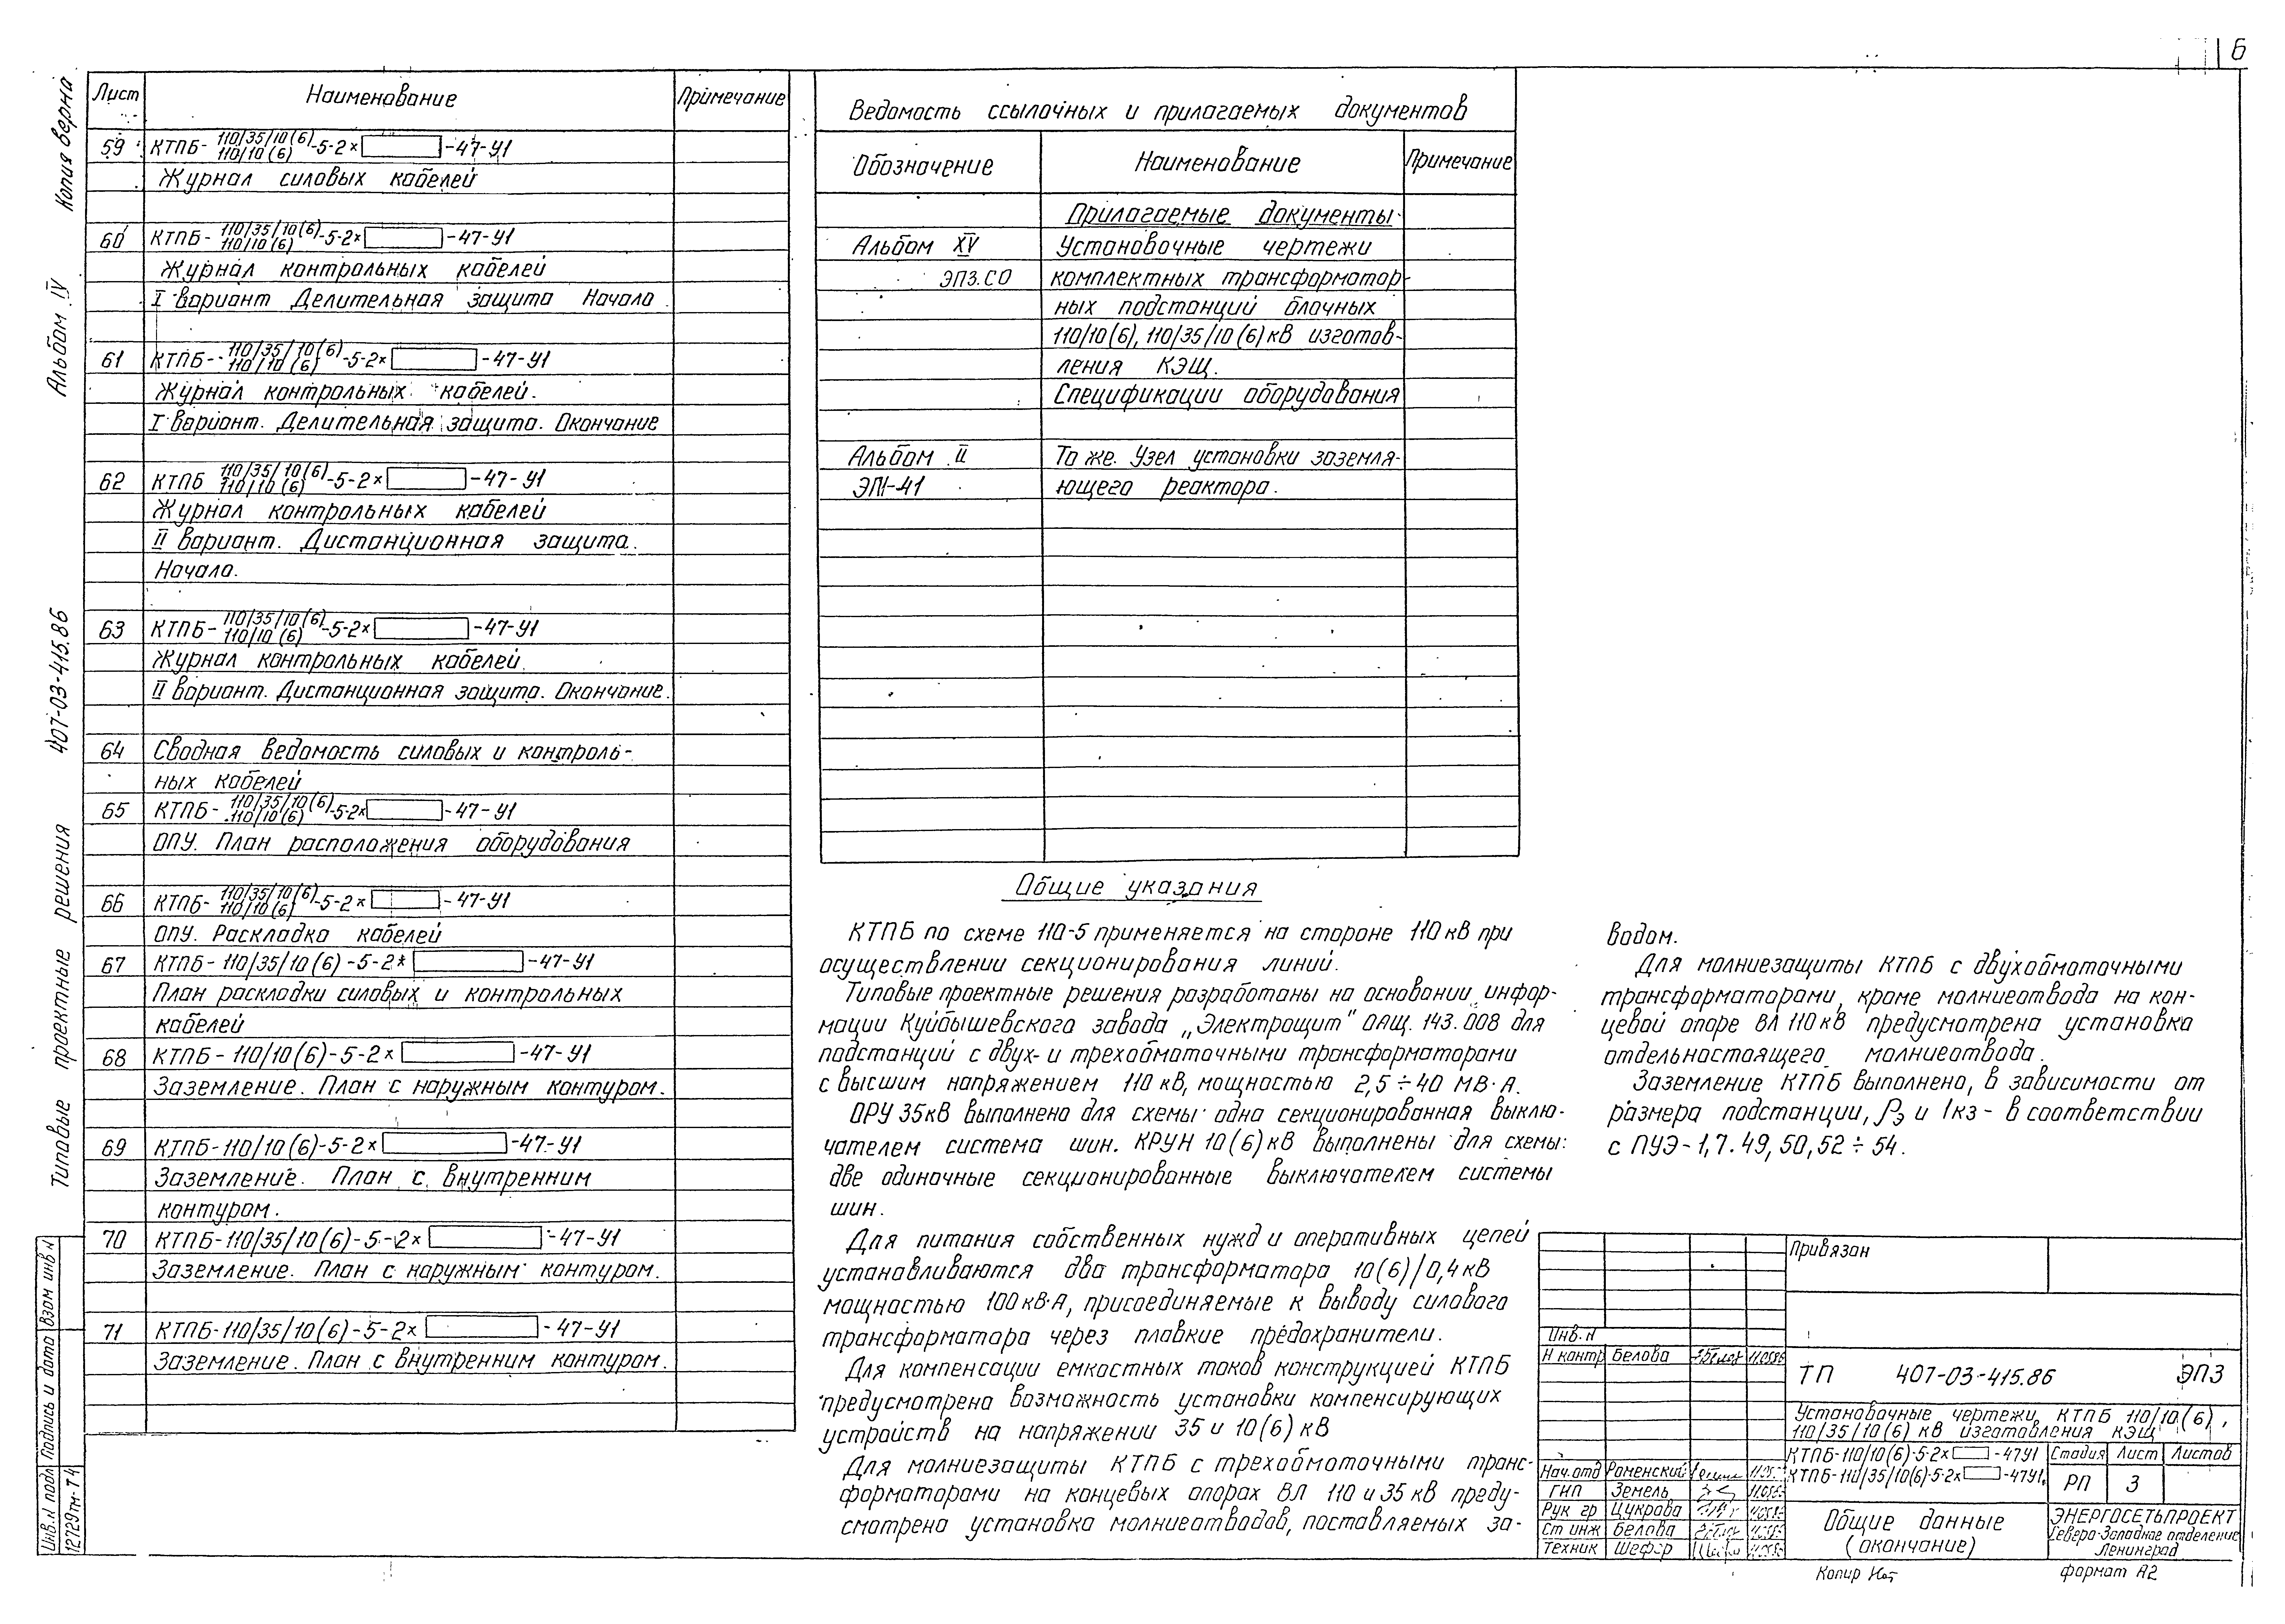 6
Копия верна
Альбом IV
407-03-415.86
Типовые проектные решения
Взам инв N
Подпись и дата
Инв. N подл
12729тм-Т4
Лист Наименование Примечание
59 КТПБ- 110/35/10(6) 110/10(6) -5-2× -47-У1
Журнал силовых кабелей
60 КТПБ- 110/35/10(6) 110/10(6) -5-2× -47-У1
Журнал контрольных кабелей
I вариант Делительная защита Начало
61 КТПБ- 110/35/10(6) 110/10(6) -5-2× -47-У1
Журнал контрольных кабелей.
I вариант. Делительная защита. Окончание
62 КТПБ 110/35/10(6) 110/10(6) -5-2× -47-У1
Журнал контрольных кабелей
II вариант. Дистанционная защита.
Начало.
63 КТПБ- 110/35/10(6) 110/10(6) -5-2× -47-У1
Журнал контрольных кабелей.
II вариант. Дистанционная защита. Окончание.
64 Сводная ведомость силовых и контроль-
ных кабелей
65 КТПБ- 110/35/10(6) 110/10(6) -5-2× -47-У1
ОПУ. План расположения оборудования
66 КТПБ- 110/35/10(6) 110/10(6) -5-2× -47-У1
ОПУ. Раскладка кабелей
67 КТПБ-110/35/10(6)-5-2× -47-У1
План раскладки силовых и контрольных
кабелей
68 КТПБ-110/10(6)-5-2× -47-У1
Заземление. План с наружным контуром.
69 КТПБ-110/10(6)-5-2× -47-У1
Заземление. План с внутренним
контуром.
70 КТПБ-110/35/10(6)-5-2× -47-У1
Заземление. План с наружным контуром.
71 КТПБ-110/35/10(6)-5-2× -47-У1
Заземление. План с внутренним контуром.
Ведомость ссылочных и прилагаемых документов
Обозначение Наименование Примечание
Прилагаемые документы
Альбом XV Установочные чертежи
ЭП3.СО комплектных трансформатор-
ных подстанций блочных
110/10(6), 110/35/10(6) кВ изготов-
ления КЭЩ.
Спецификации оборудования
Альбом II То же. Узел установки заземля-
ЭП1-41 ющего реактора.
Общие указания
КТПБ по схеме 110-5 применяется на стороне 110 кВ при
осуществлении секционирования линий.
Типовые проектные решения разработаны на основании инфор-
мации Куйбышевского завода „Электрощит" ОАЩ.143.008 для
подстанций с двух- и трехобмоточными трансформаторами
с высшим напряжением 110 кВ, мощностью 2,5÷40 МВ·А.
ОРУ 35кВ выполнено для схемы одна секционированная выклю-
чателем система шин. КРУН 10(6) кВ выполнены для схемы:
две одиночные секционированные выключателем системы
шин.
Для питания собственных нужд и оперативных цепей
устанавливаются два трансформатора 10(6)/0,4 кВ
мощностью 100 кВ·А, присоединяемые к выводу силового
трансформатора через плавкие предохранители.
Для компенсации емкостных токов конструкцией КТПБ
предусмотрена возможность установки компенсирующих
устройств на напряжении 35 и 10(6) кВ
Для молниезащиты КТПБ с трехобмоточными транс-
форматорами на концевых опорах ВЛ 110 и 35 кВ преду-
смотрена установка молниеотводов, поставляемых за-
водом.
Для молниезащиты КТПБ с двухобмоточными
трансформаторами, кроме молниеотвода на кон-
цевой опоре ВЛ 110 кВ предусмотрена установка
отдельностоящего молниеотвода.
Заземление КТПБ выполнено, в зависимости от
размера подстанции, ρэ и Iкз - в соответствии
с ПУЭ-1,7.49,50,52÷54.
Привязан
Инв. N
Н контр Белова
ТП 407-03-415.86 ЭП3
Установочные чертежи КТПБ 110/10(6),
110/35/10(6) кВ изготовления КЭЩ
КТПБ-110/10(6)-5-2× -47У1
КТПБ-110/35/10(6)-5-2× -47У1.
Стадия Лист Листов
РП 3
Нач.отд Роменский
ГИП Земель
Рук гр Цукрова
Ст инж Белова
Техник Шефер
Общие данные
(окончание)
ЭНЕРГОСЕТЬПРОЕКТ
Северо-Западное отделение
Ленинград
Копир
формат А2